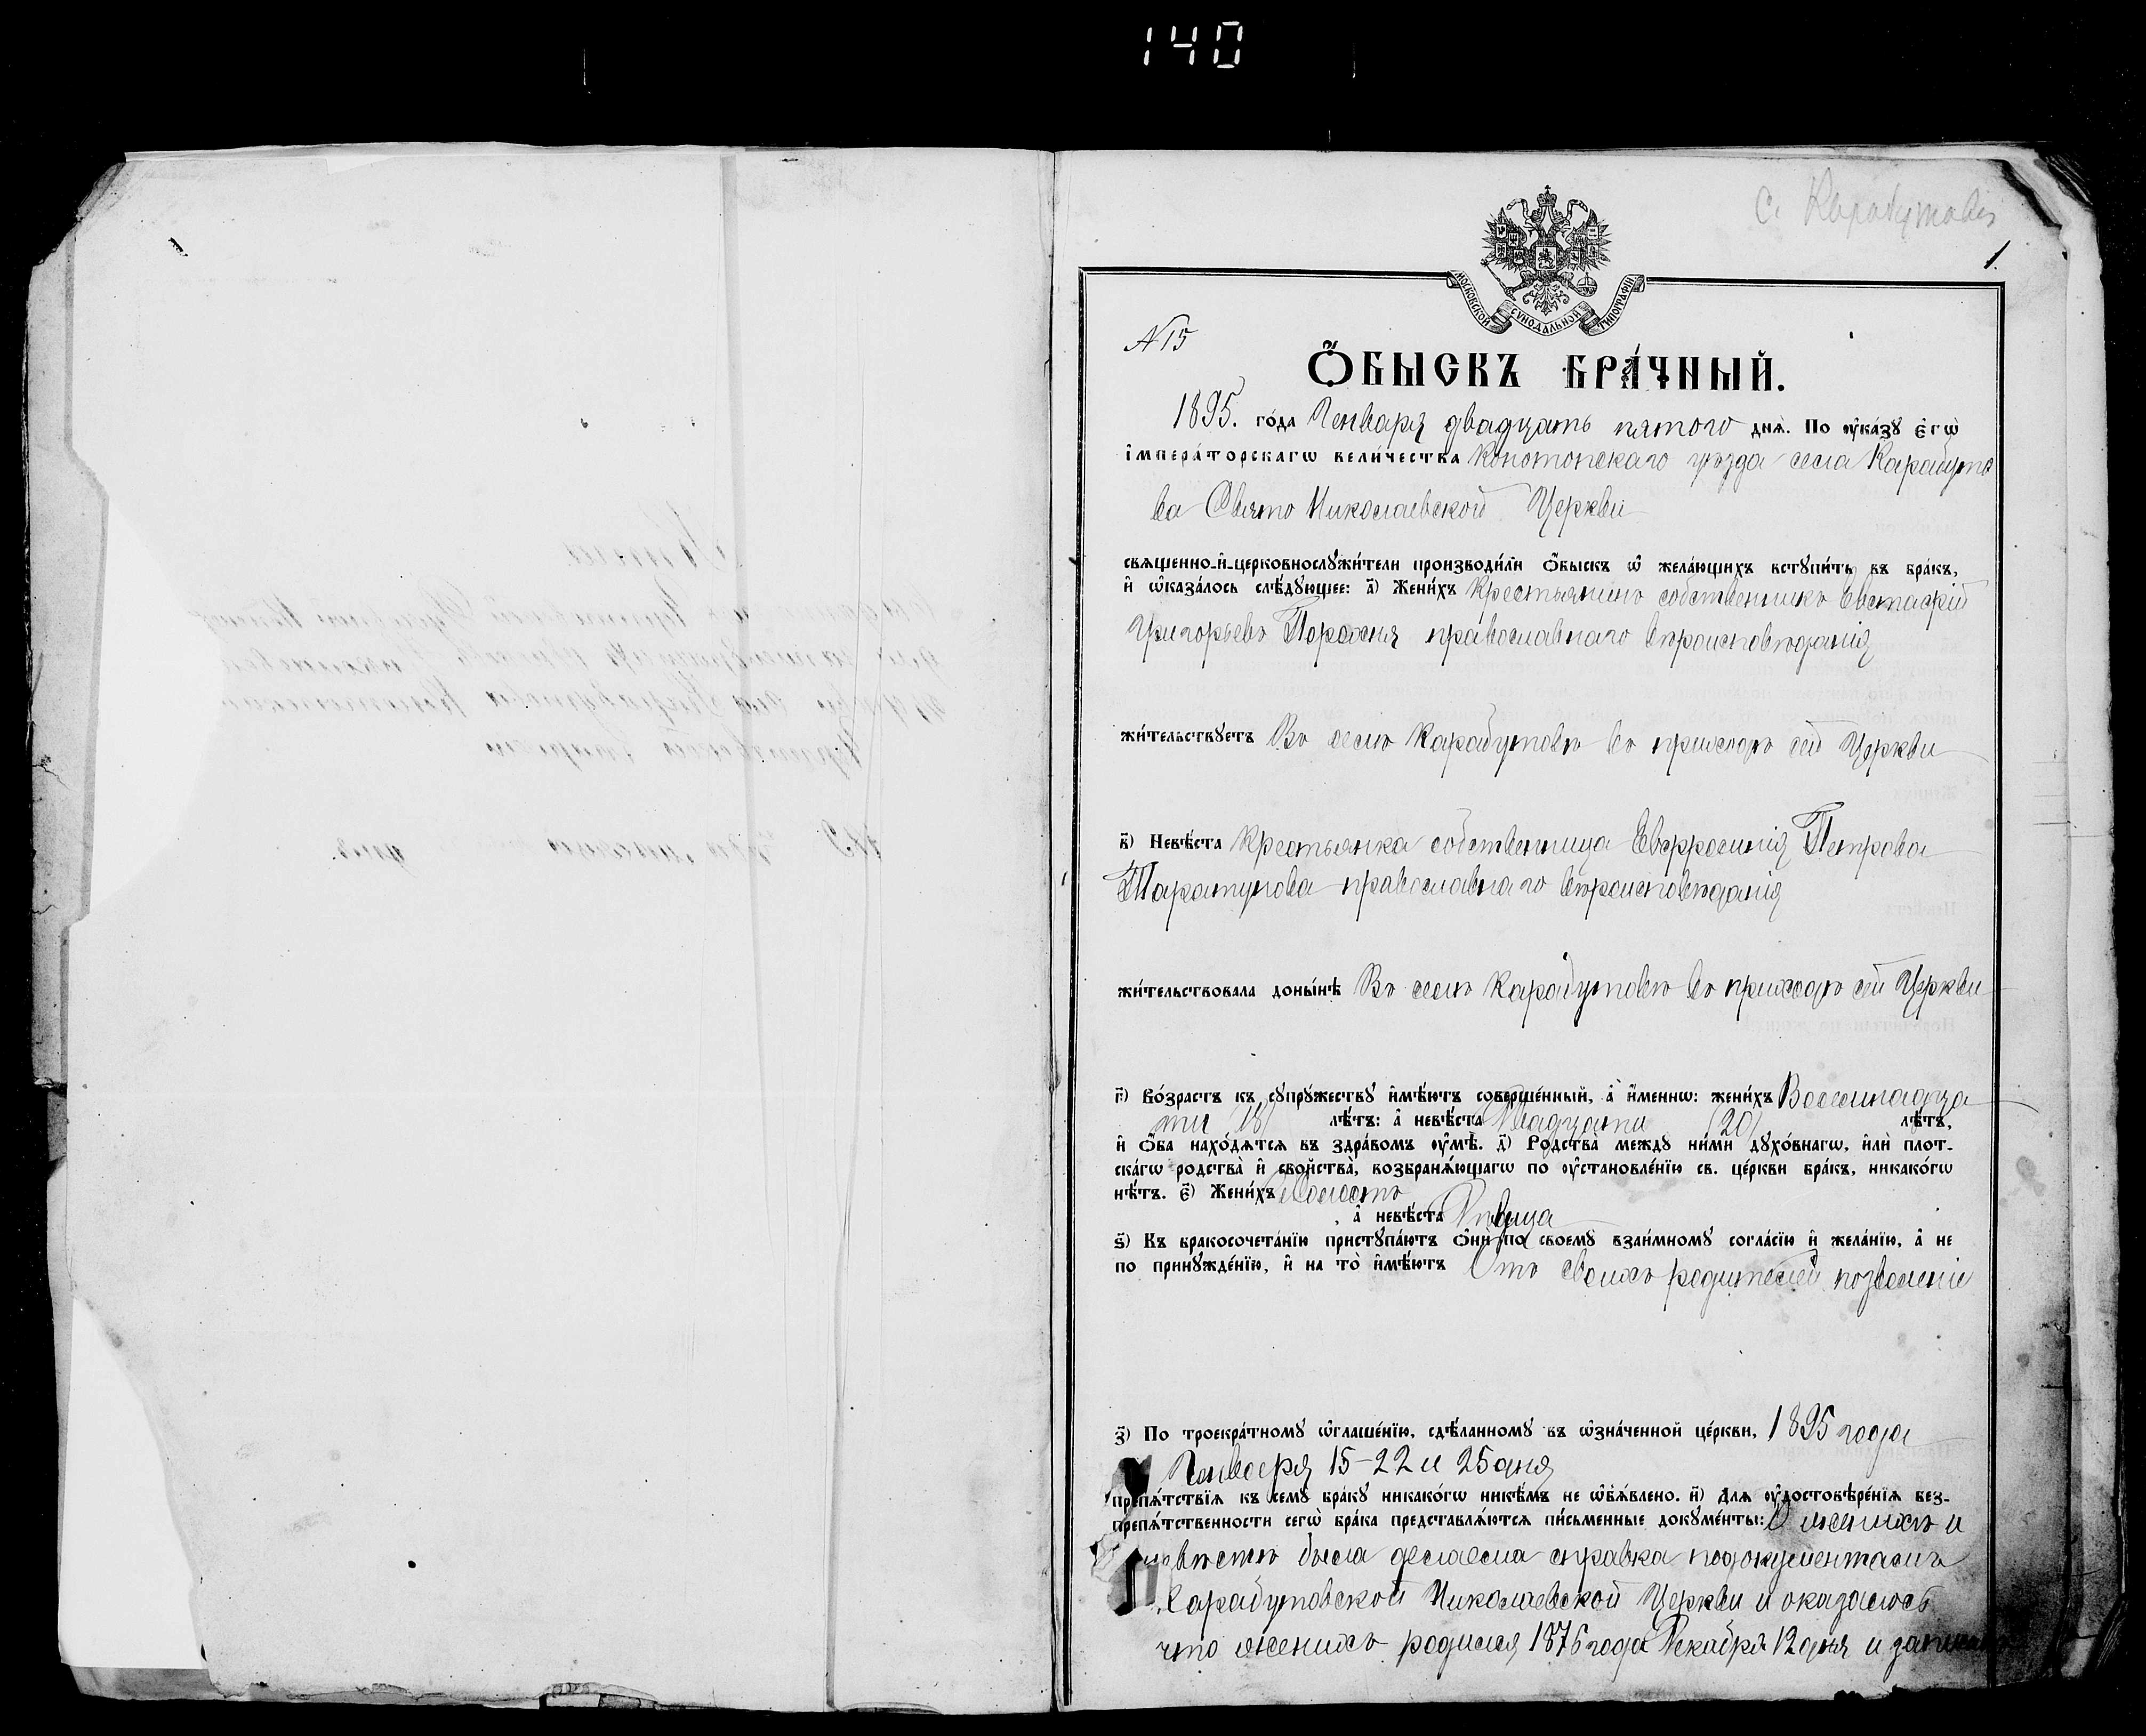 140
с. Карабутовъ
1.
МОСКОВСКОЙ СѴНОДАЛЬНОЙ ТИПОГРАФІИ.
N 15
Ѻ҆БЫСКЪ БРА́ЧНЫЙ.
1895. го́да Генваря двадцать пятого днѧ̀. По ᲂу҆ка́зꙋ є҆гѡ̀
і҆мпера́торскагѡ вели́чества Конотопскаго уѣзда села Карабуто
ва Свято Николаевской Церкви
свѧщенно-и҆-церковнослꙋжи́тели производи́ли ѻ҆́быскъ ѡ҆ жела́ющихъ встꙋпи́ть въ бра́къ,
и҆ ѡ҆каза́лось слѣ́дꙋющее: а҃) Жени́хъ Крестьянинъ собственникъ Евстафій
Григорьевъ Порохня православнаго вѣроисповѣданія
жи́тельствꙋетъ Въ селѣ Карабутовѣ въ приходѣ сей Церкви
в҃) Невѣ́ста Крестьянка собственница Евфросинія Петрова
православнаго вѣроисповѣданія
жи́тельствовала доны́нѣ Въ селѣ Карабутовѣ въ приходѣ сей Церкви
г҃) Во́зрастъ къ сꙋпрꙋ́жествꙋ и҆мѣ́ютъ соверше́нный, а҆ и҆́меннѡ: жени́хъ Восемнадца
ти /18/ лѣ́тъ: а҆ невѣ́ста Двадцати /20/ лѣ́тъ,
и҆ ѻ҆́ба нахо́дѧтсѧ въ здра́вомъ ᲂу҆мѣ̀. д҃) Родства̀ междꙋ ни́ми дꙋхо́внагѡ, и҆лѝ плот-
ска́гѡ родства̀ и҆ сво́йства̀, возбранѧ́ющагѡ по ᲂу҆становле́нїю св. це́ркви бра́къ, никако́гѡ
нѣ́тъ. є҃) Жени́хъ Холостъ
а҆ невѣ́ста Дѣвица
ѕ҃) Къ бракосочета́нїю пристꙋпа́ютъ ѻ҆нѝ по своемꙋ̀ взаи́мномꙋ согла́сїю и҆ жела́нїю, а҆ не
по принꙋжде́нїю, и҆ на то̀ и҆мѣ́ютъ Отъ своихъ родителей позволеніе
з҃) По троекра́тномꙋ ѡ҆глаше́нїю, сдѣ́ланномꙋ въ ѡ҆зна́ченной це́ркви, 1895 года
Генваря 15-22 и 25 дня
препѧ́тствїѧ къ семꙋ̀ бра́кꙋ никако́гѡ никѣ́мъ не ѡ҆б̾ѧ́влено. и҃) Длѧ ᲂу҆достовѣре́нїѧ без-
препѧ́тственности сегѡ̀ бра́ка представлѧ́ютсѧ пи́сьменные докꙋме́нты: О женихѣ и
невѣстѣ была делаема справка по документамъ
Карабутовской Николаевской Церкви и оказалось
что женихъ родился 1876 года Декабря 12 дня и записанъ